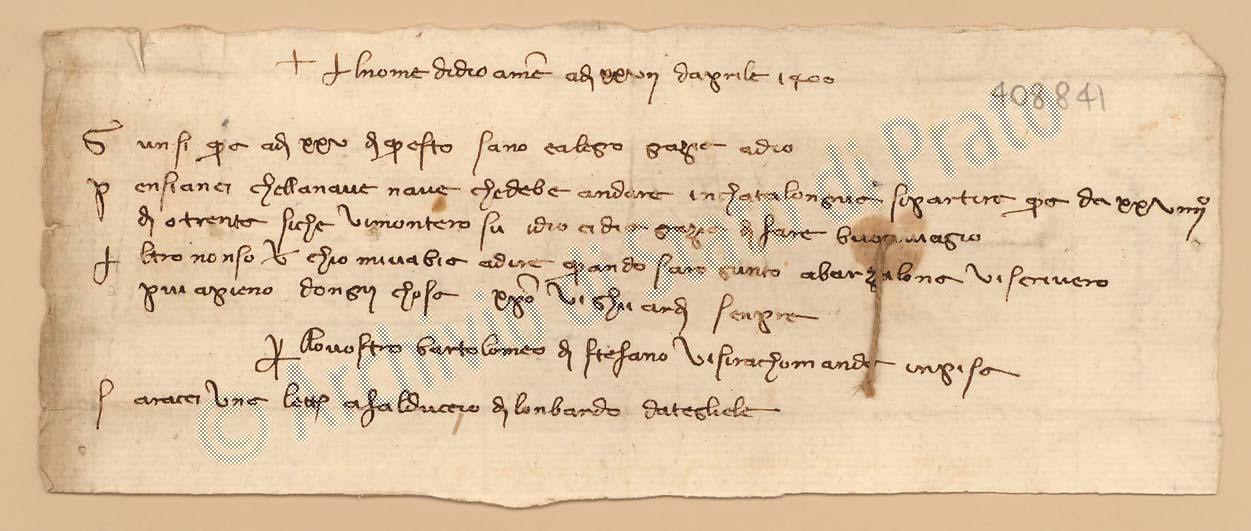 + Al nome di dio amē adj xxvij daprile 1400
408841
Gunsi qua adj xxv di questo sano e alegro grazia a dio
Pensianci chella nave nave che debe andare in chatalongnia si partire qua da xxviiijº
di o trenta siche vi montero su idio ci dia grazia di fare buon viagio
Altro non so che chio mi vabia a dire quando saro gunto a barzalona vi scrivero
piu apieno dongni chosa xpō vi ghuardj senpre
Per llo vostro bartolomeo di stefano vi si rachomanda in pisa
Saracci una letta a falduccio di lonbardo dategliele
© Archivio di Stato di Prato